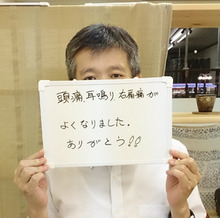 頭痛、耳鳴り 右肩痛が
よくなりました。
ありがとう!!